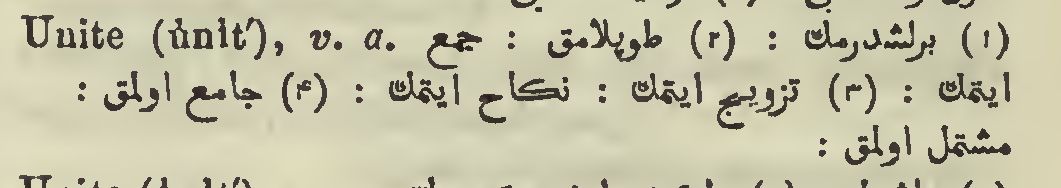 Unite (ûnit′), v. a. (۱) برلشدرمك : (۲) طوپلامق : جمع
ایتمك : (۳) تزویج ایتمك : نكاح ایتمك : (۴) جامع اولمق :
مشتمل اولمق :